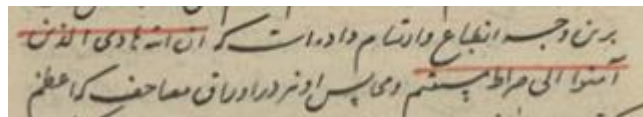 برین وجه انطباع وارتسام داده است که ان الله هادی الذین
آمنوا الی صراط مستقیم وهی پس او نر در اوراق مصاحف که اعظم